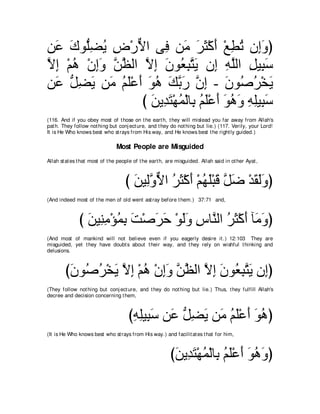 ﴿وَإِن تُطِعْ أَكْثَرَ مَن فِى الاٌّرْضِ يُضِلُّوكَ عَن
سَبِيلِ اللَّهِ إِن يَتَّبِعُونَ إِلاَّ الظَّنَّ وَإِنْ هُمْ إِلاَّ
يَخْرُصُونَ - إِنَّ رَبَّكَ هُوَ أَعْلَمُ مَن يَضِلُّ عَن
سَبِيلِهِ وَهُوَ أَعْلَمُ بِالْمُهْتَدِينَ ﴾
(116. And if you obey most of those on the earth, they will mislead you far away from Allah's
path. They follow nothing but conjecture, and they do nothing but lie.) (117. Verily, your Lord!
It is He Who knows best who strays from His way, and He knows best the rightly guided.)
Most People are Misguided
Allah states that most of the people of the earth, are misguided. Allah said in other Ayat,
﴿وَلَقَدْ ضَلَّ قَبْلَهُمْ أَكْثَرُ الاٌّوَّلِينَ ﴾
(And indeed most of the men of old went astray before them.) 37:71 and,
﴿وَمَآ أَكْثَرُ النَّاسِ وَلَوْ حَرَصْتَ بِمُؤْمِنِينَ ﴾
(And most of mankind will not believe even if you eagerly desire it.) 12:103 They are
misguided, yet they have doubts about their way, and they rely on wishful thinking and
delusions.
﴿إِن يَتَّبِعُونَ إِلاَّ الظَّنَّ وَإِنْ هُمْ إِلاَّ يَخْرُصُونَ﴾
(They follow nothing but conjecture, and they do nothing but lie.) Thus, they fulfill Allah's
decree and decision concerning them,
﴿هُوَ أَعْلَمُ مَن يَضِلُّ عَن سَبِيلِهِ﴾
(It is He Who knows best who strays from His way.) and facilitates that for him,
﴿وَهُوَ أَعْلَمُ بِالْمُهْتَدِينَ﴾